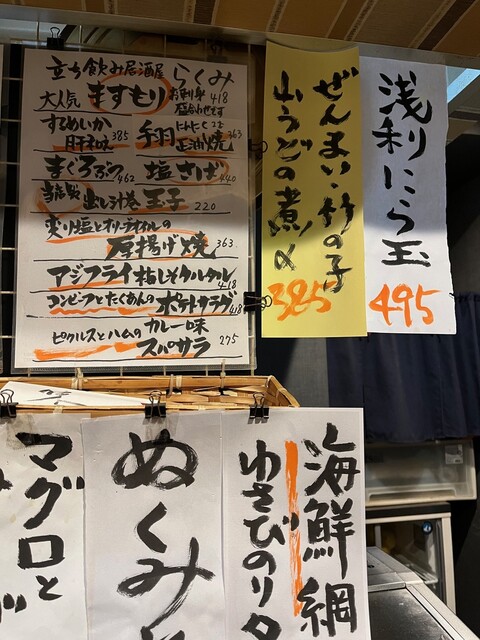 立ち飲み居酒屋 らくみ
大人気 ますもり お刺身 418
するめいか 肝和味 385
手羽 にんにく 正油焼 363
まぐろぶつ 462 塩さば 440
出し汁巻 玉子 220
変り塩とオリーブオイルの
厚揚げ焼 363
アジフライ 梅しそタルタル 418
コンビーフとたくあんの ポテトサラダ 418
ピクルスとハムの カレー味
スパサラ 275
ぜんまい・竹の子
山うどの煮〆
385
浅利にら玉
495
海鮮網
ゆさびのりタ
ぬくみ
マグロと